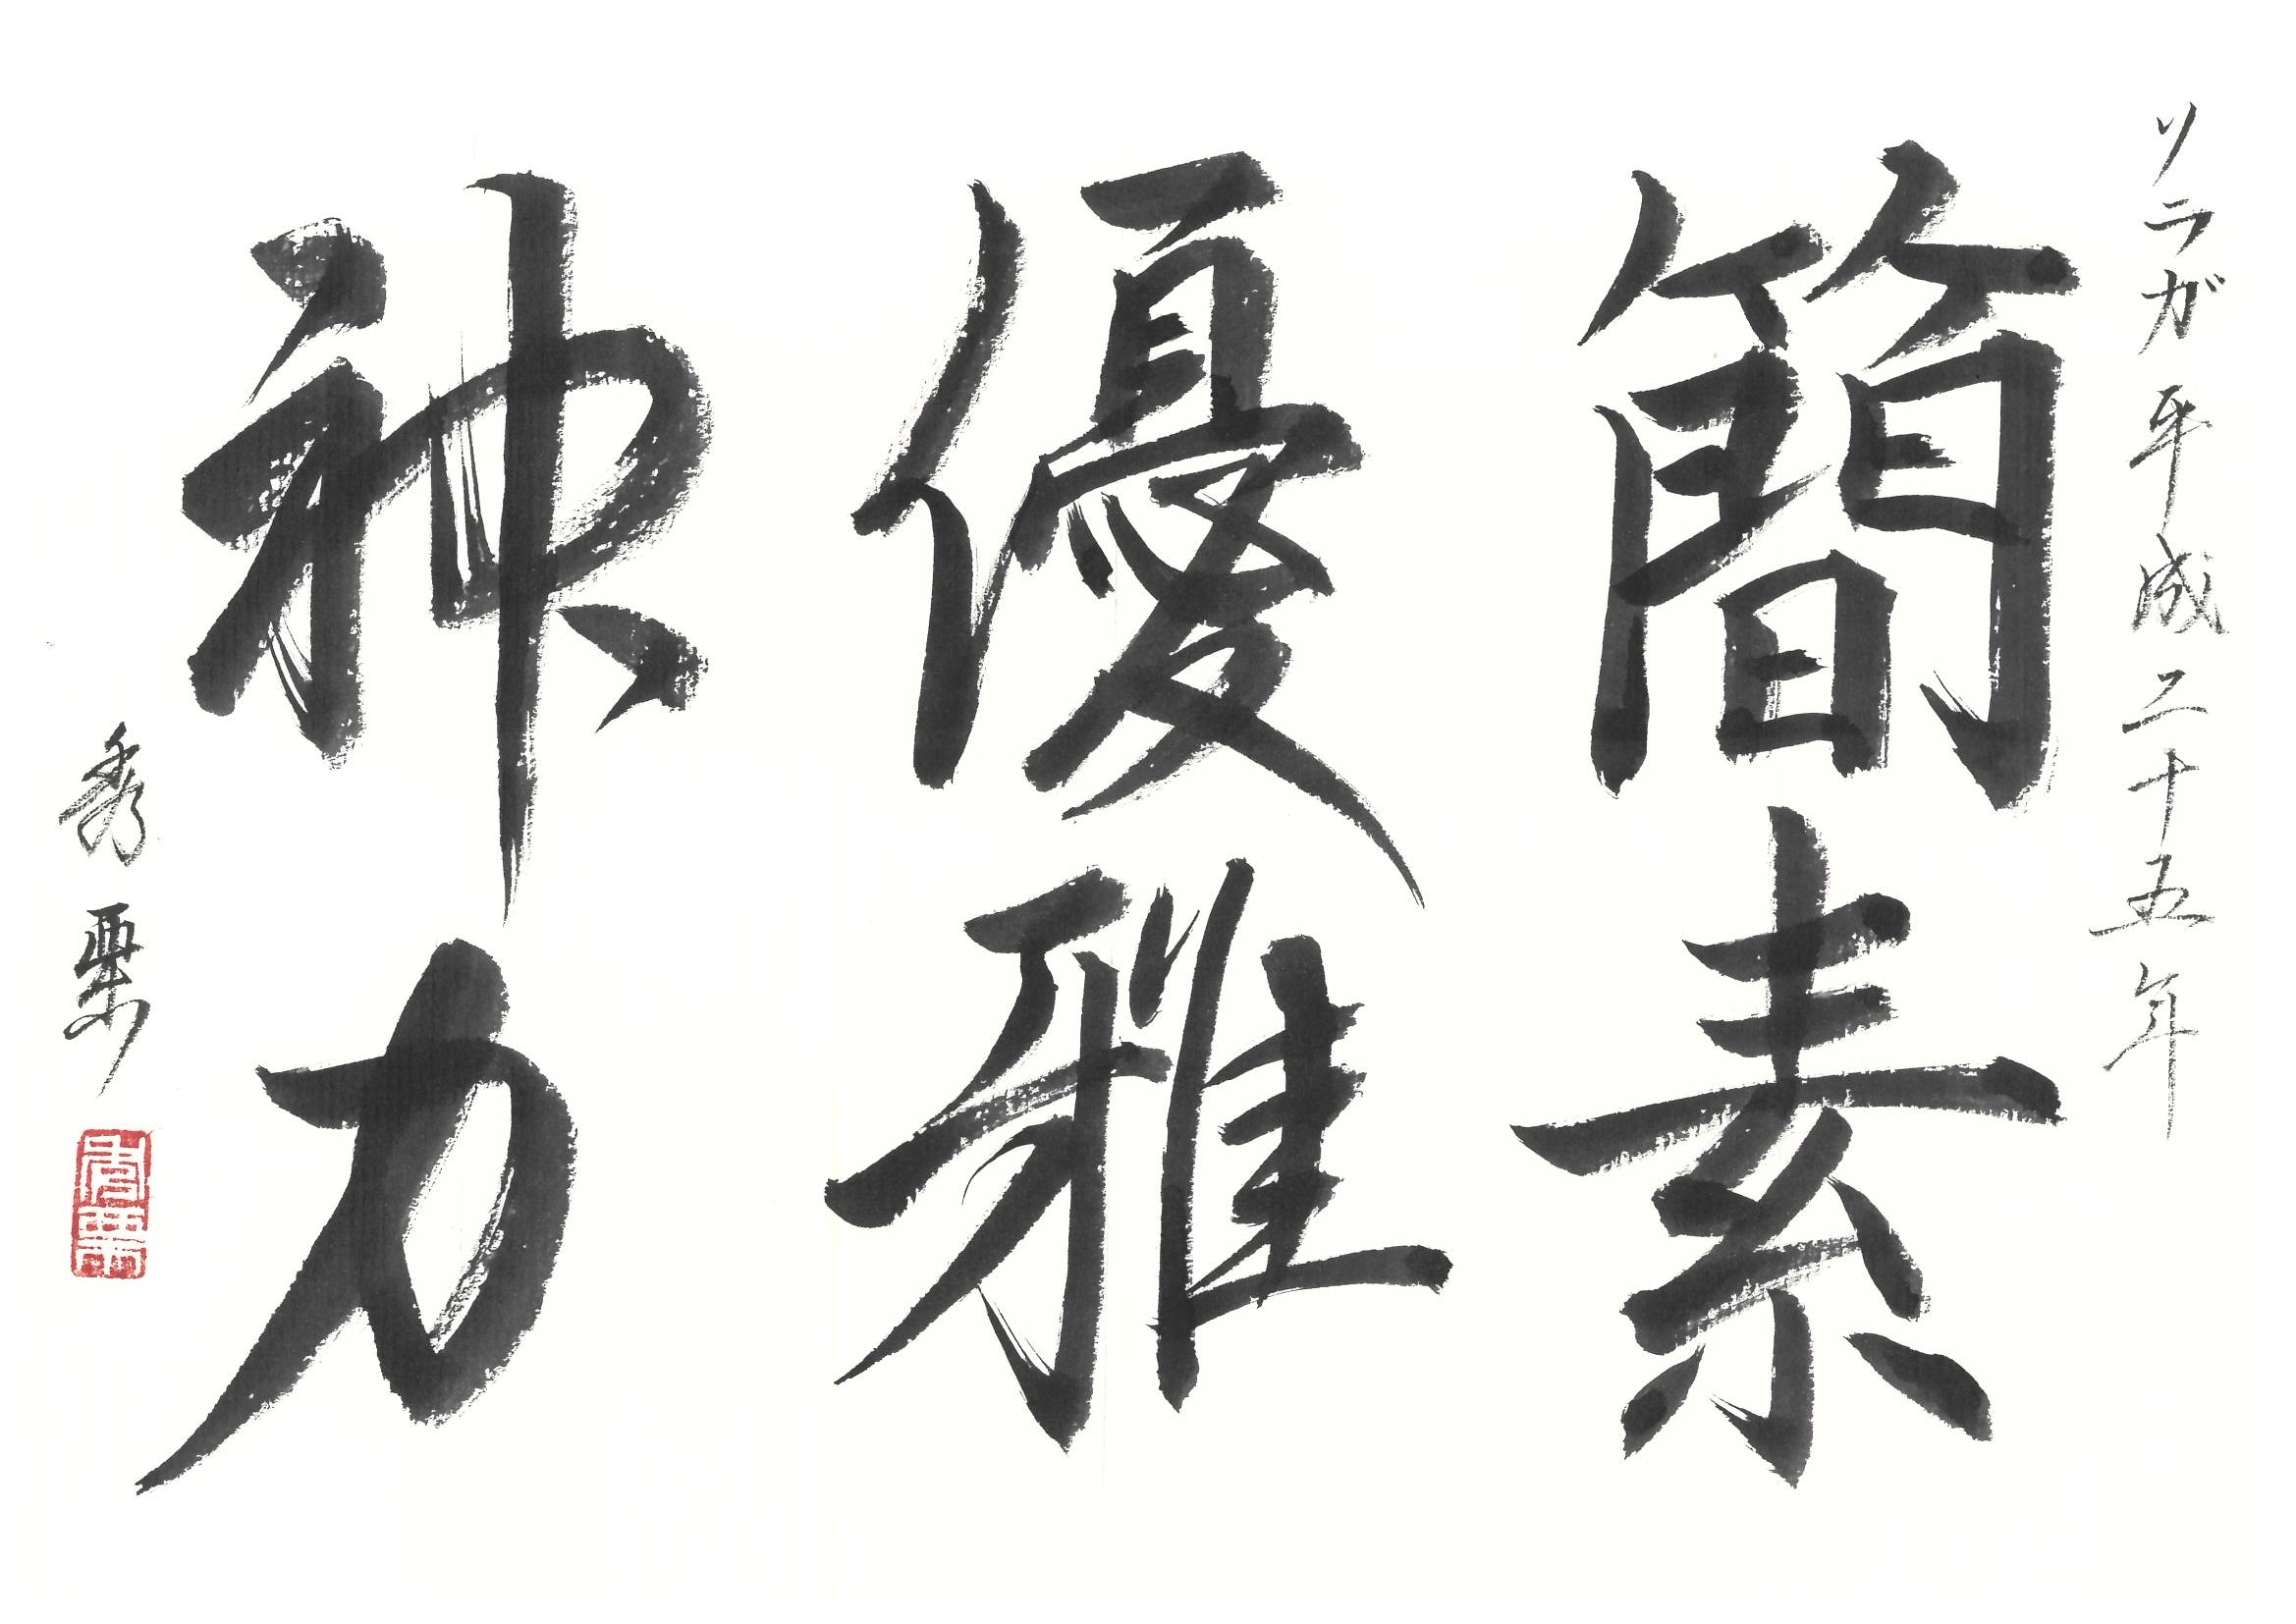 ソラガ 平成二十五年
簡素
優雅
神力
秀栗
秀栗